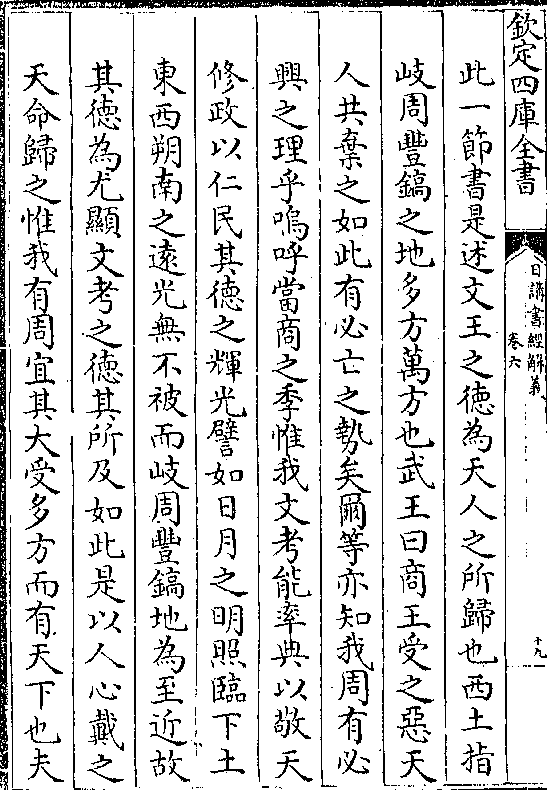 欽定四庫全書
日講書經解義
卷六
十九
此一節書是述文王之德為天人之所歸也西土指
岐周豐鎬之地多方萬方也武王曰商王受之惡天
人共棄之如此有必亡之勢矣爾等亦知我周有必
興之理乎嗚呼當商之季惟我文考能率典以敬天
修政以仁民其德之輝光譬如日月之明照臨下土
東西朔南之遠光無不被而岐周豐鎬地為至近故
其德為尤顯文考之德其所及如此是以人心戴之
天命歸之惟我有周宜其大受多方而有天下也夫